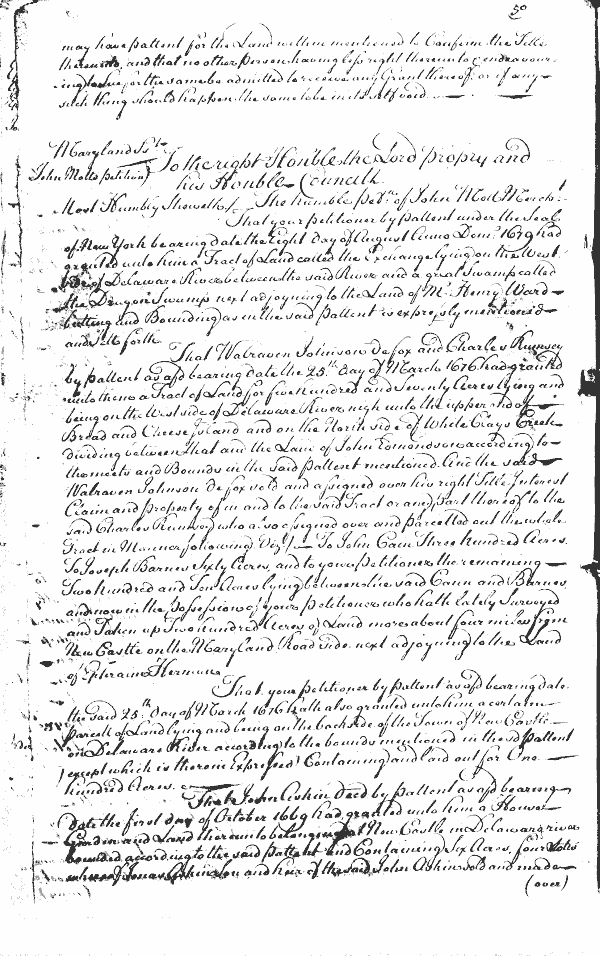 50
may have pattent for the Land within mentioned to Confirm the Title
thereunto, and that no other Person having less right thereunto endeavour-
ing to sue for the same be admitted to receive any Grant thereof, or if any
such thing should happen the same to be in itself void.
Maryland Ss.
John Molls petition) To the right Honble the Lord propry and
his Honble Councill.
Most Humbly Sheweth/. The humble Petn. of John Moll Merch.t
That your petitioner by pattent under the Seal
of New York bearing date the Eight Day of August Anno Dom. 1679 had
granted unto him a Tract of Land called the Exchange lying on the West
side of Delaware River between the said River and a great Swamp called
the Dragon Swamp next adjoyning to the Land of Mr. Henry Ward
butting and Bounding as in the said pattent is expressly mentioned
and set forth
That Walraven Johnson Defox and Charles Rumsey
by pattent as afd bearing date the 25th Day of March 1676 had granted
unto them a Tract of Land for five hundred and Seventy Acres lying and
being on the West side of Delaware River nigh unto the upper end of
Bread and Cheese Island and on the North side of White Clays Creek
dividing between that and the Land of John Edmondson according to
the meets and Bounds in the said pattent mentioned. And the said
Walraven Johnson Defox sold and assigned over his right Title Interest
Claim and property of in and to the said Tract or any part thereof to the
said Charles Rumsey who also assigned over and parcelled out the whole
Tract in Manner following Vizt/. To John Cann Three hundred Acres.
To Joseph Barnes Sixty Acres, and to your Petitioner the remaining
Two hundred and Ten Acres lying between the said Cann and Barnes,
and now in the Possession of your Petitioner who hath lately Surveyed
and Taken up Two hundred Acres of Land more about four miles from
New Castle on the Maryland Road side next adjoyning to the Land
of Ephraim Herman
That your petitioner by pattent as afd bearing date
the said 25th Day of March 1676 hath also granted unto him a certain
Parcell of Land lying and being on the backside of the Town of New Castle
on Delaware River according to the bounds mentioned in the sd pattent
(except which is therein Expressed) Containing and laid out for One
hundred Acres.
That John Askin Deced by pattent as afd bearing
date the first day of October 1669 had granted unto him a House
Garden and Land thereunto belonging at New Castle in Delaware river
bounded according to the said pattent and Containing Six Acres, four
Jonas Askin son and heir of the said John Askin sold and made
(over)